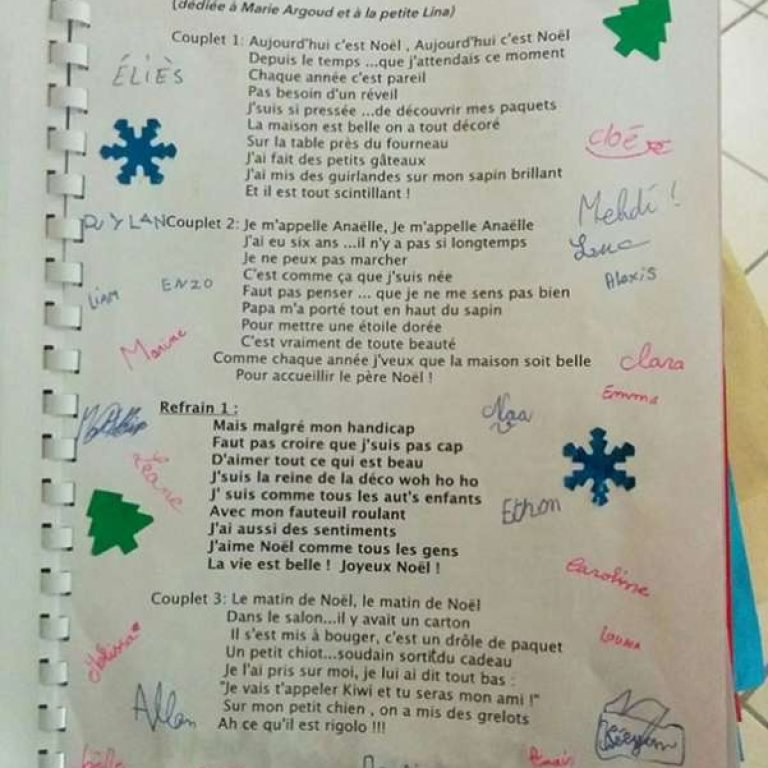 (dédiée à Marie Argoud et à la petite Lina)
Couplet 1: Aujourd'hui c'est Noël , Aujourd'hui c'est Noël
Depuis le temps ...que j'attendais ce moment
ÉLIÈS
Chaque année c'est pareil
Pas besoin d'un réveil
J'suis si pressée ...de découvrir mes paquets
La maison est belle on a tout décoré
Sur la table près du fourneau
cloé
J'ai fait des petits gâteaux
J'ai mis des guirlandes sur mon sapin brillant
Et il est tout scintillant !
Mehdi !
DYLAN
Couplet 2: Je m'appelle Anaëlle, Je m'appelle Anaëlle
J'ai eu six ans ...il n'y a pas si longtemps
Je ne peux pas marcher
C'est comme ça que j'suis née
Alexis
LIAM
ENZO
Faut pas penser ... que je ne me sens pas bien
Papa m'a porté tout en haut du sapin
Pour mettre une étoile dorée
Marine
C'est vraiment de toute beauté
Comme chaque année j'veux que la maison soit belle
Clara
Pour accueillir le père Noël !
Emma
Refrain 1 :
Noa
Mais malgré mon handicap
Faut pas croire que j'suis pas cap
D'aimer tout ce qui est beau
Léane
J'suis la reine de la déco woh ho ho
J' suis comme tous les aut's enfants
Ethan
Avec mon fauteuil roulant
J'ai aussi des sentiments
J'aime Noël comme tous les gens
La vie est belle ! Joyeux Noël !
Caroline
Couplet 3: Le matin de Noël, le matin de Noël
Dans le salon...il y avait un carton
Il s'est mis à bouger, c'est un drôle de paquet
Louna
Un petit chiot...soudain sorti du cadeau
Mélissa
Je l'ai pris sur moi, je lui ai dit tout bas :
"Je vais t'appeler Kiwi et tu seras mon ami !"
Allan
Sur mon petit chien , on a mis des grelots
Ah ce qu'il est rigolo !!!